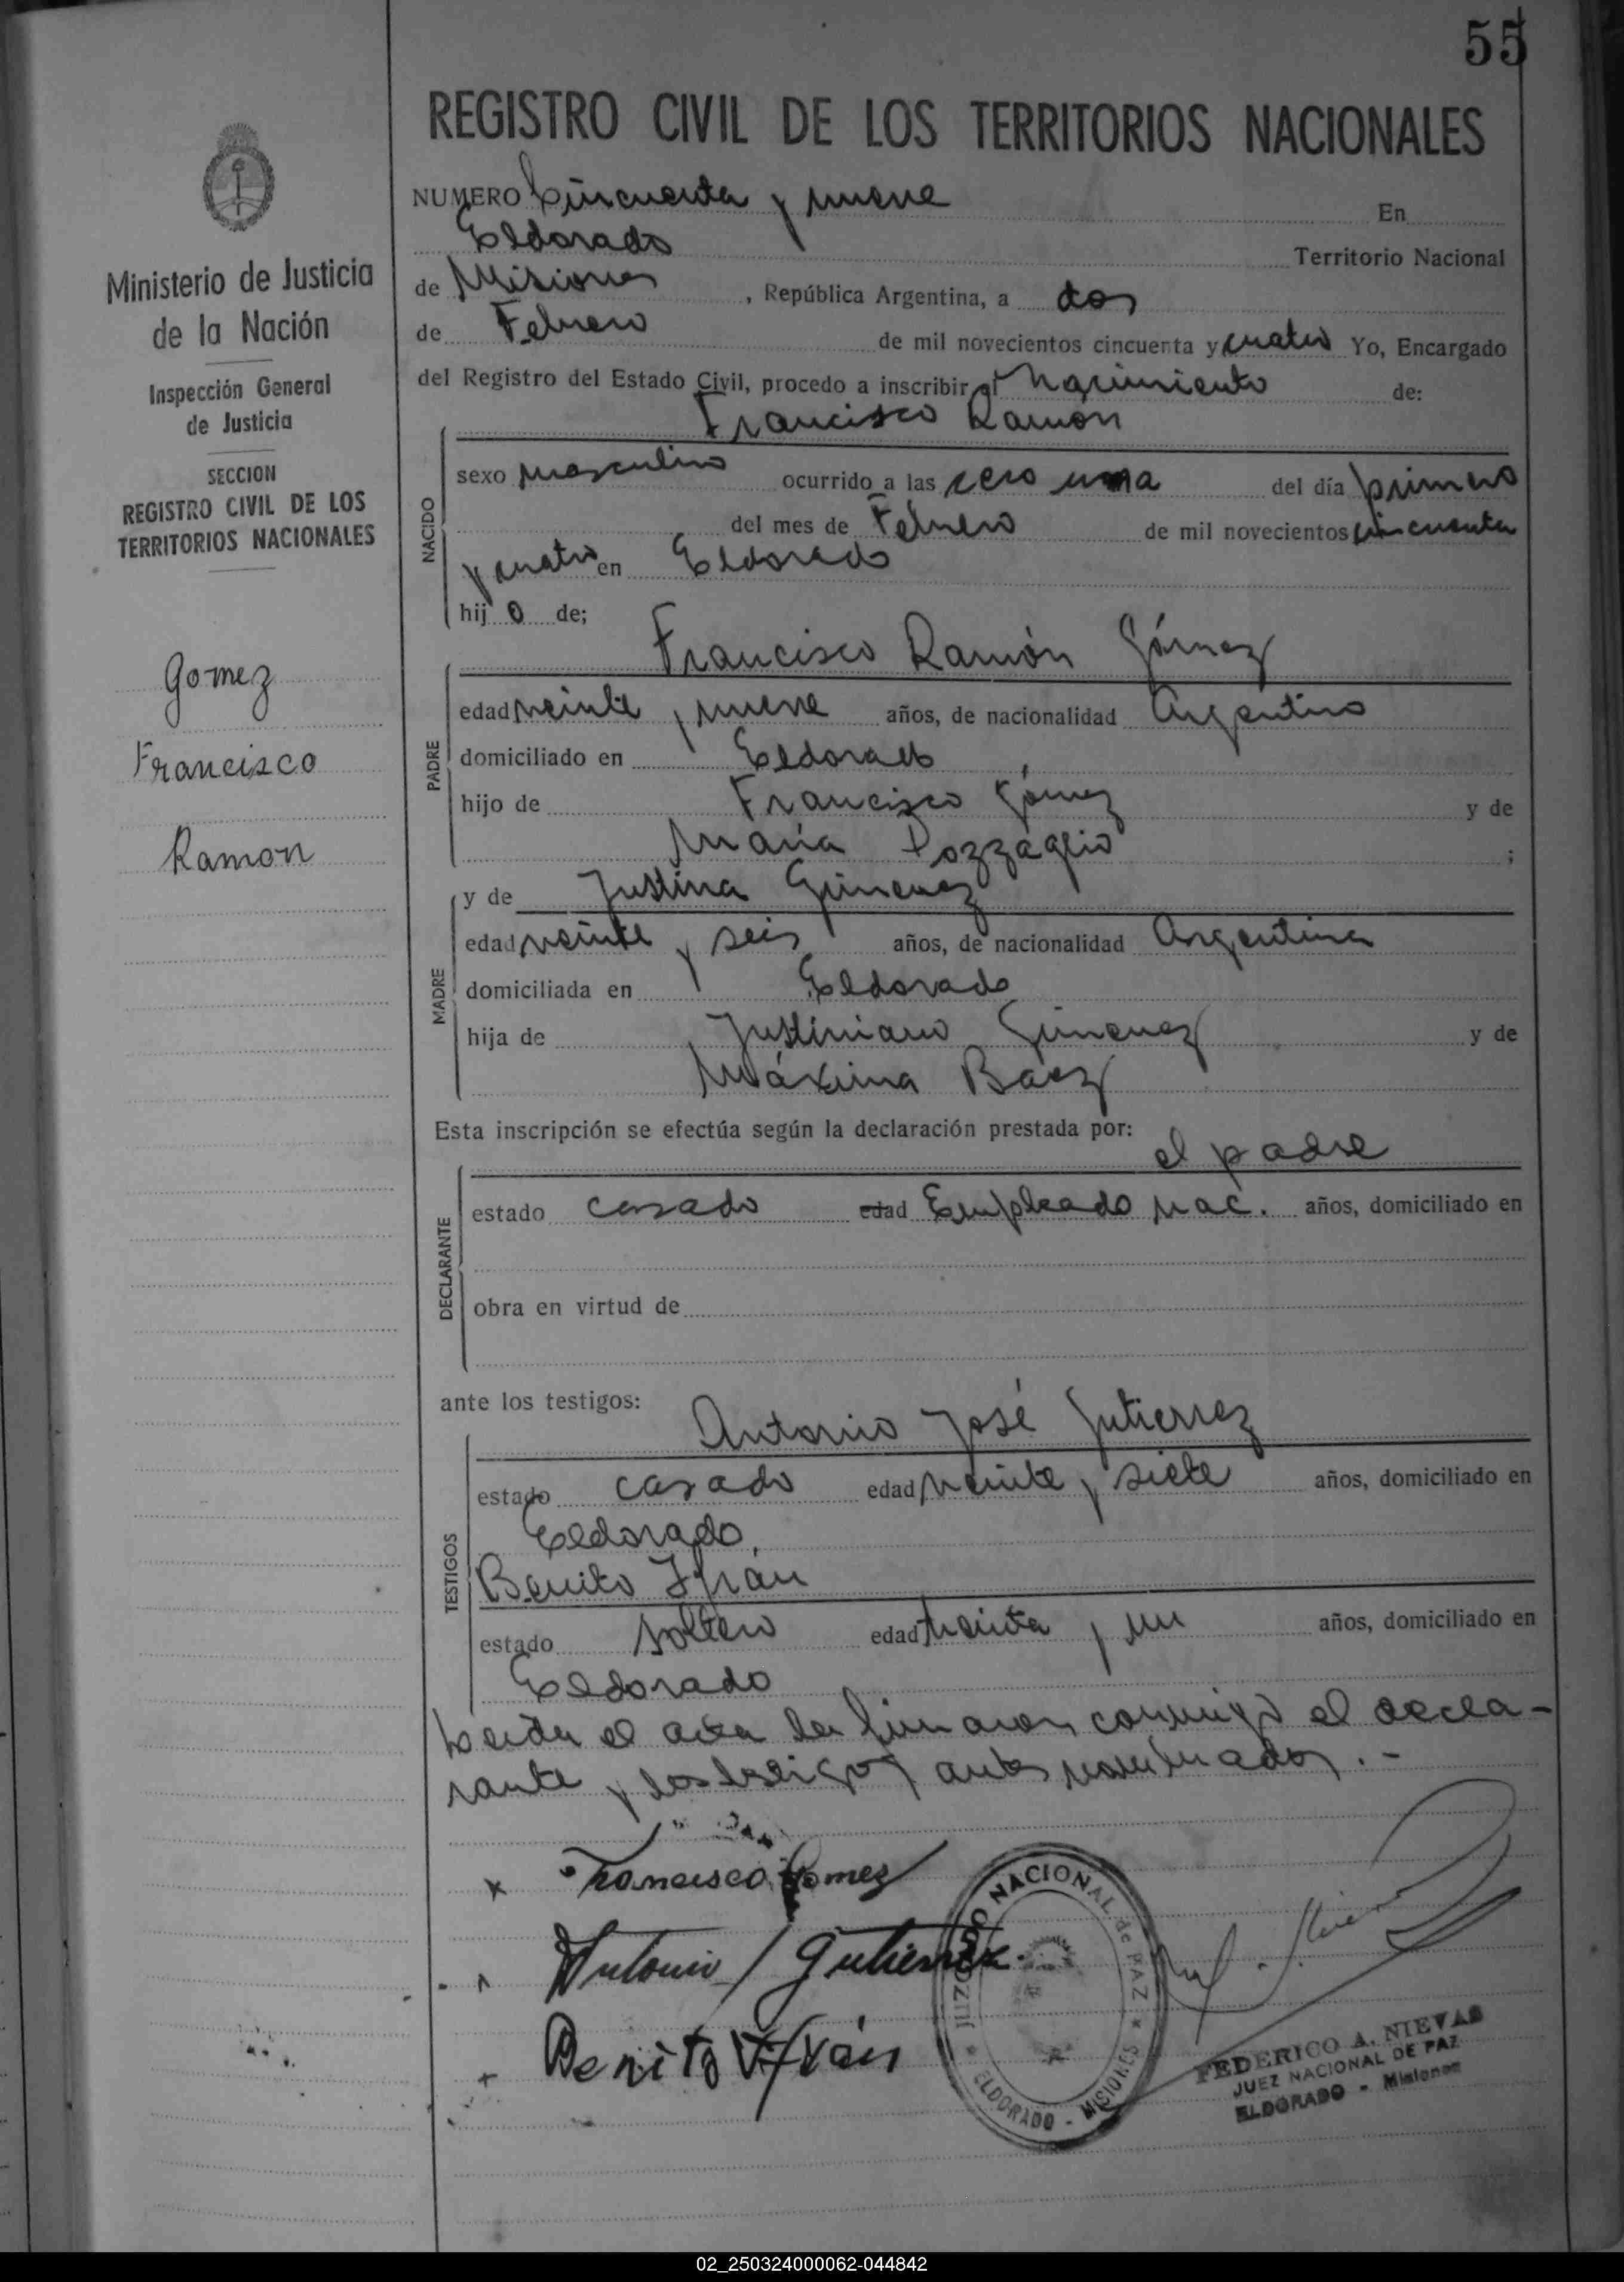 55
REGISTRO CIVIL DE LOS TERRITORIOS NACIONALES
Ministerio de Justicia
de la Nación
Inspección General
de Justicia
SECCION
REGISTRO CIVIL DE LOS
TERRITORIOS NACIONALES
Gomez
Francisco
Ramon
NUMERO Cincuenta y nueve En
Eldorado Territorio Nacional
de Misiones, República Argentina, a dos
de Febrero de mil novecientos cincuenta y cuatro Yo, Encargado
del Registro del Estado Civil, procedo a inscribir el Nacimiento de:
Francisco Ramón
NACIDO
sexo masculino ocurrido a las cero una del día primero
del mes de Febrero de mil novecientos cincuenta
y cuatro en Eldorado
hijo de;
Francisco Ramón Gómez
PADRE
edad veinte y nueve años, de nacionalidad Argentino
domiciliado en Eldorado
hijo de Francisco Gómez y de
María Pozzaglio ;
y de Justina Gimenez
MADRE
edad veinte y seis años, de nacionalidad Argentina
domiciliada en Eldorado
hija de Justiniano Gimenez y de
Máxima Baez
Esta inscripción se efectúa según la declaración prestada por:
el padre
DECLARANTE
estado casado edad Empleado nac. años, domiciliado en
obra en virtud de
ante los testigos:
Antonio José Gutierrez
TESTIGOS
estado casado edad veinte y siete años, domiciliado en
Eldorado,
Benito Ifrán
estado soltero edad treinta y un años, domiciliado en
Eldorado
Leida el acta la firmaron conmigo el decla-
rante y los testigos antes nombrados.-
x Francisco Gomez
Antonio J Gutierrez.
Benito Ifrán
JUZGADO NACIONAL de PAZ
ELDORADO - MISIONES
FEDERICO A. NIEVAS
JUEZ NACIONAL DE PAZ
ELDORADO - Misiones
02_250324000062-044842